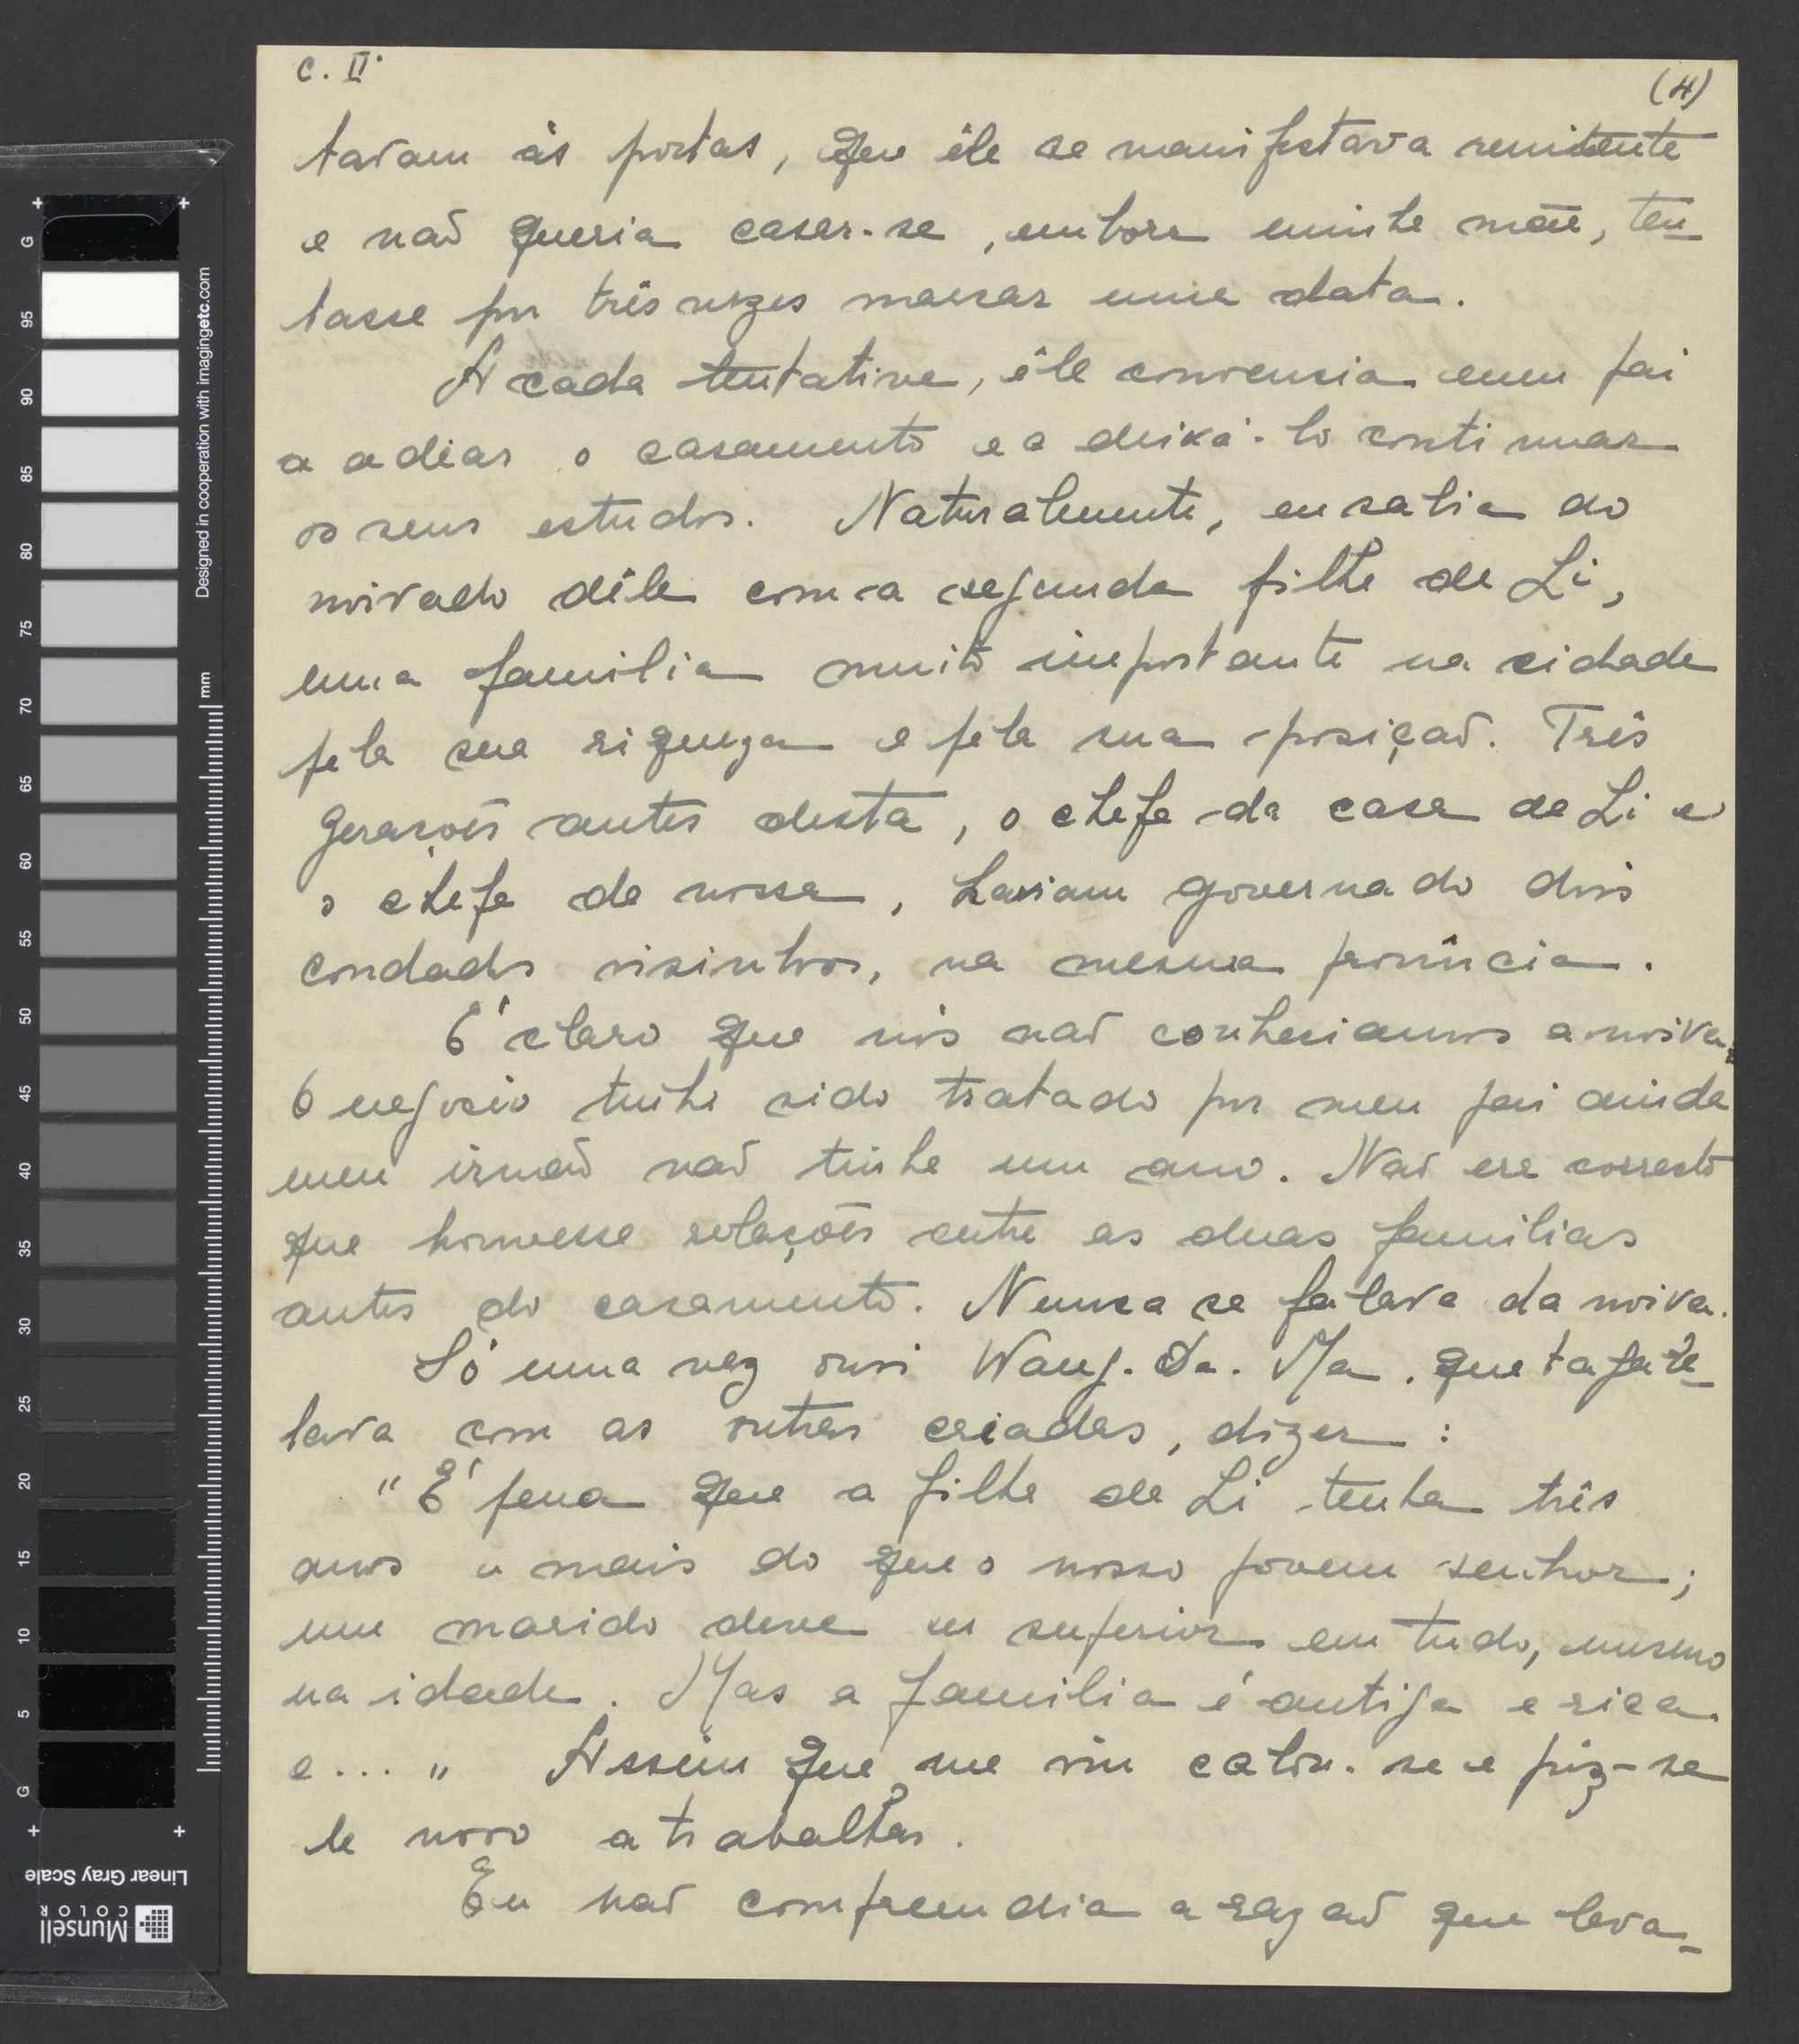 c. II.
(4)
tavam às portas, que êle se manifestava renitente
e naõ queria casar-se, embora minha mãe, ten-
tasse por três vezes marcar uma data.
A cada tentativa, êle convencia meu pai
a adiar o casamento e a deixá-lo continuar
os seus estudos. Naturalmente, eu sabia do
noivado dêle com a segunda filha de Li,
uma familia muito importante na cidade
pela sua riqueza e pela sua posiçaõ. Três
gerações antes desta, o chefe da casa de Li e
o chefe da nossa, haviam governado dois
condados visinhos, na mesma província.
É claro que nós naõ conheciamos a noiva.
O negocio tinha sido tratado por meu pai ainda
meu irmaõ naõ tinha um ano. Naõ era correcto
que houvesse relações entre as duas familias
antes do casamento. Nunca se falava da noiva.
Só uma vez ouvi Wang-Da-Ma, que taga re-
lava com as outras criadas, dizer:
"É pena que a filha de Li tenha três
anos a mais do que o nosso jovem senhor;
um marido deve ser superior em tudo, mesmo
na idade. Mas a familia é antiga e rica
e... " Assim que me viu calou-se e pôz-se
de novo a trabalhar.
Eu naõ compreendia a razaõ que leva-
G
95
90
85
80
75
70
65
60
55
50
45
40
35
30
25
20
15
10
5
G
mm
Designed in cooperation with imagingetc.com
Linear Gray Scale
Munsell
COLOR